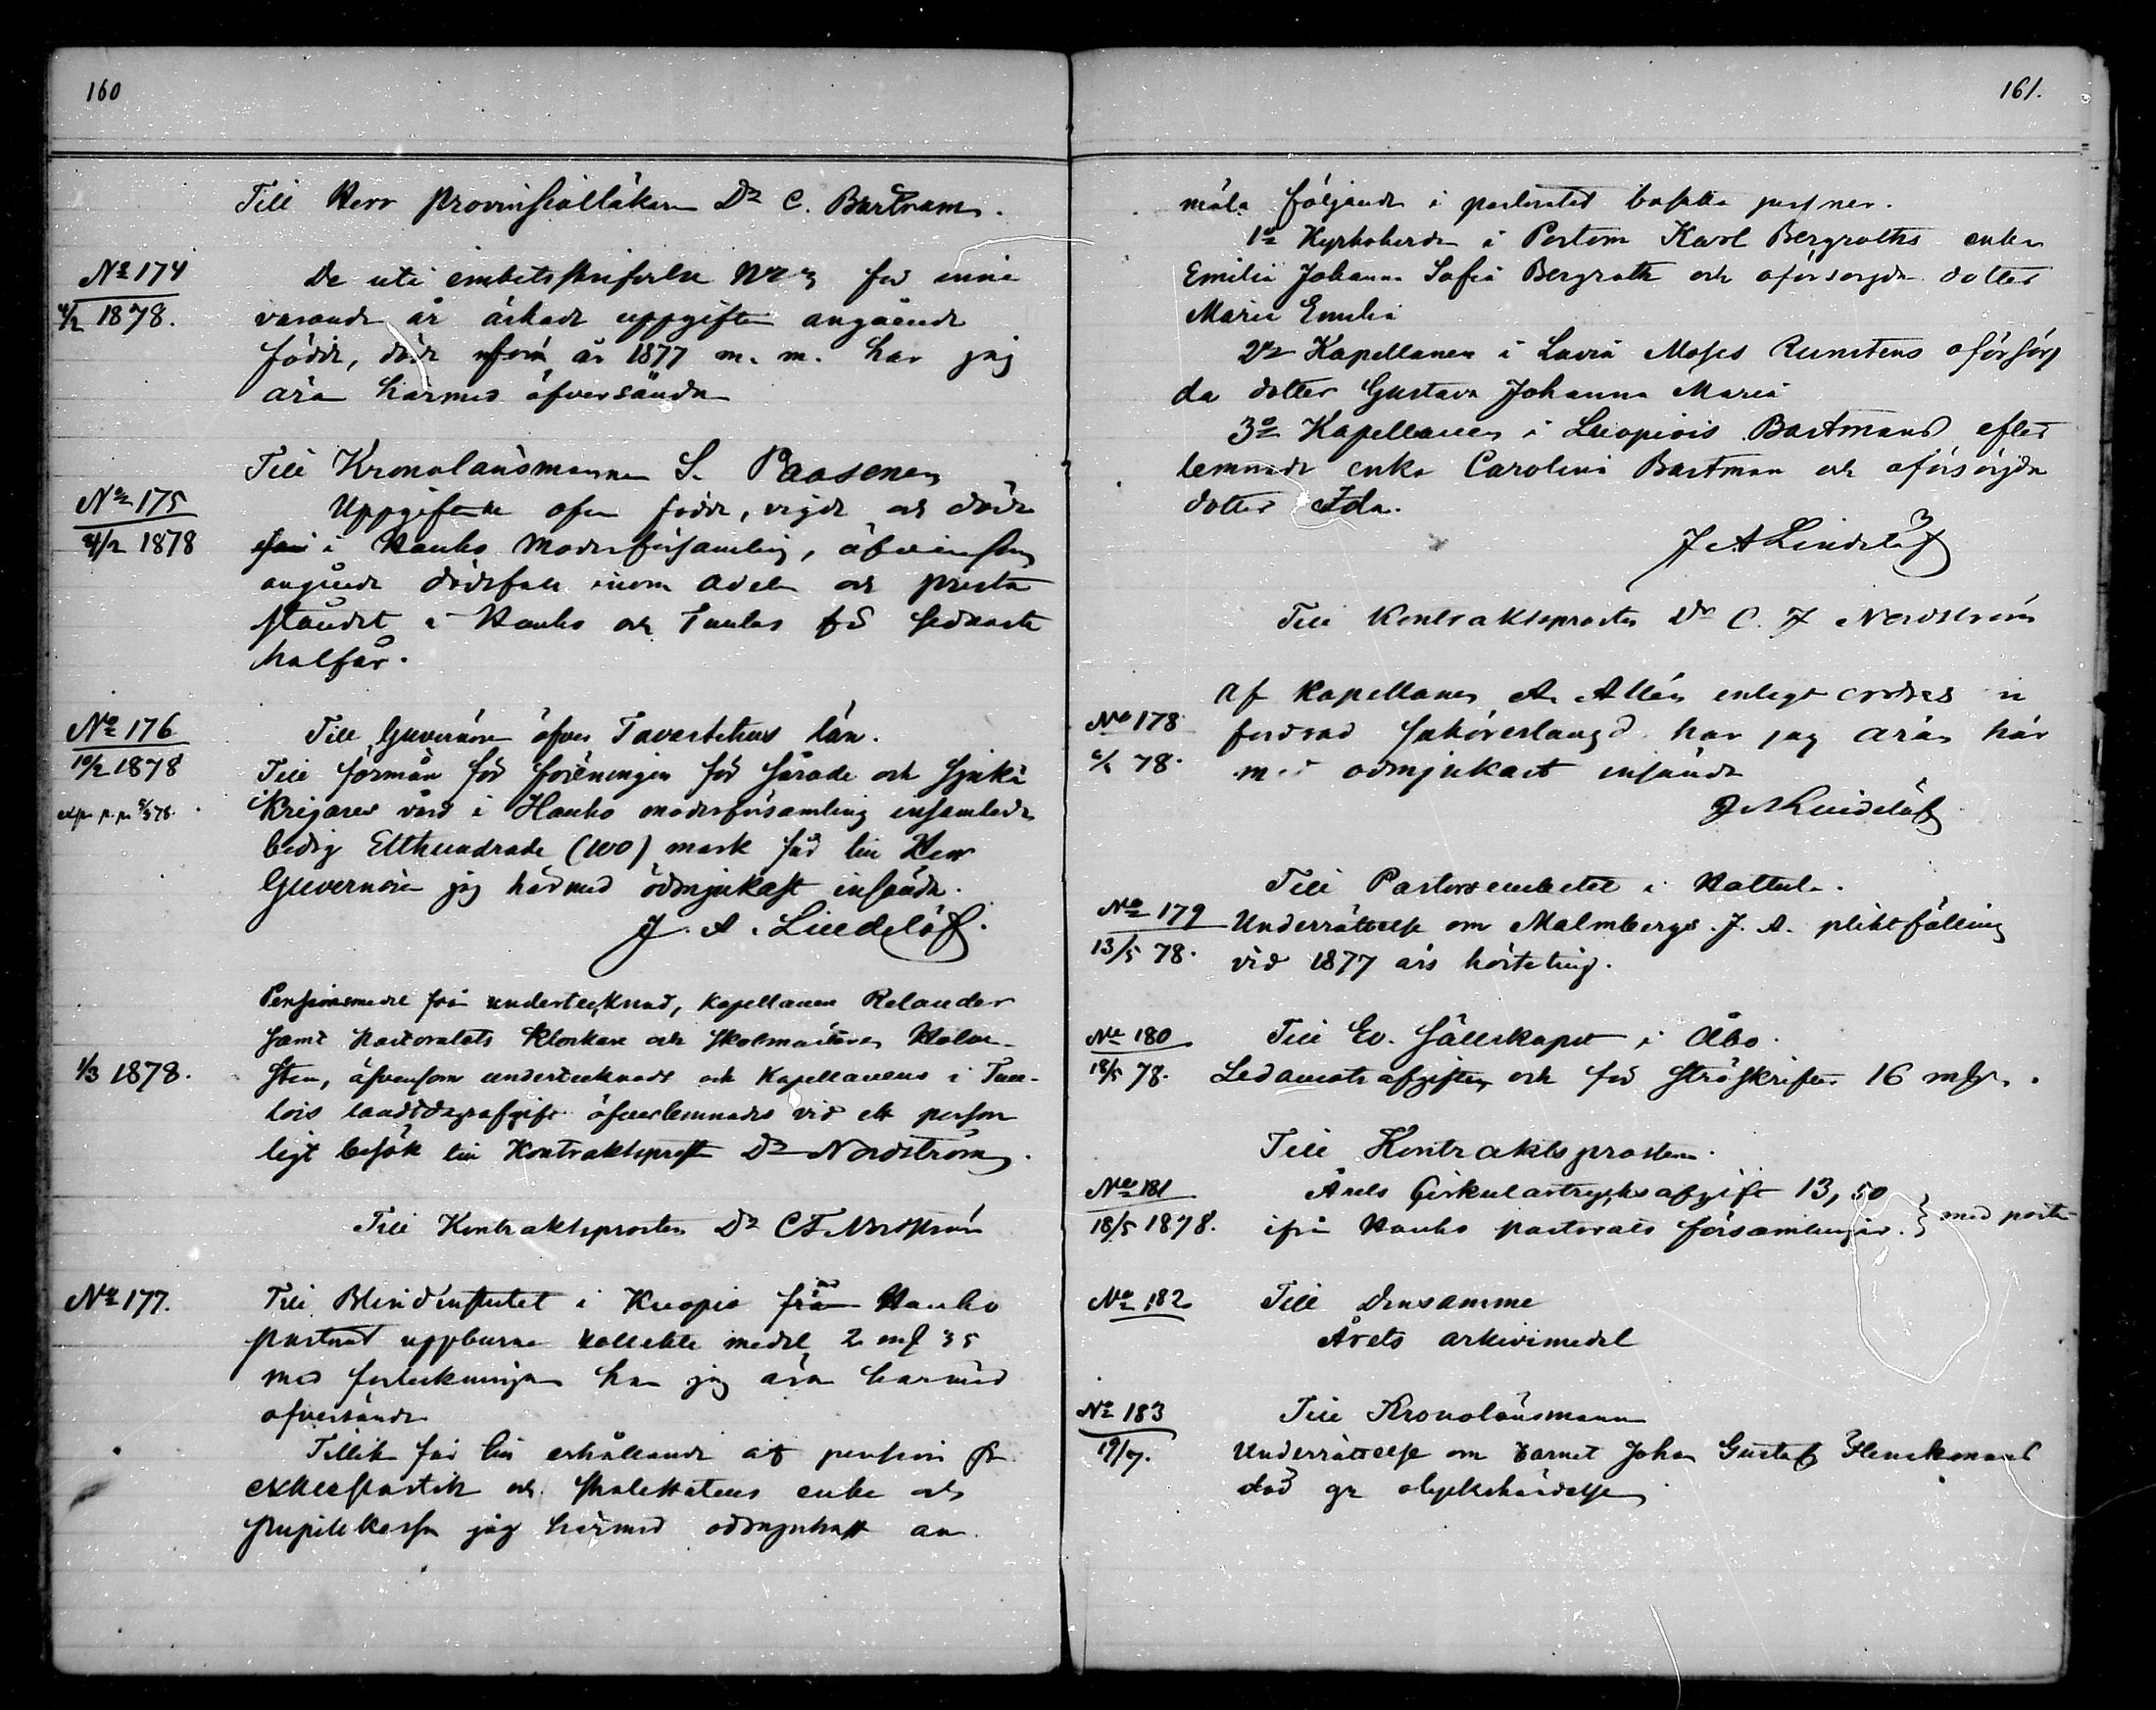 160
Till Herr Provinsialläkaren Dr C. Bartram.
No 174
4/2 1878.
De uti embetsskrifvelse No 3 för inne
varande år äskade uppgifter angående
födde, döde år 1877 m. m. har jag
äran härmed öfversända
Till Kronolänsmannen S. Paasonen
No 175
4/2 1878
Uppgifterna öfver födde, vigde och döde
i Hauho Moderförsamling, äfvensom
angående dödsfall inom Adeln och preste
ståndet i Hauho och Tuulos för sednaste
halfår.
No 176
10/2 1878
Till Guvernören öfver Tavastehus län.
Till förmån för föreningen för sårade och sjuke
Krigares vård i Hauho moderförsamling insamlade
bidrag Etthundrade (100) mark får till Herr
Guvernören jag härmed ödmjukast insända.
J. A. Lindelöf.
1/3 1878.
Pensionsmedel från undertecknad, Kapellanen Relander
samt Pastoratets Klockare och Skolmästaren Holm-
sten, äfvensom undertecknads och Kapellanens i Tuu-
lois landtdagsafgift öfverlemnades vid ett person
ligt besök till Kontraktsprosten Dr Nordström.
Till Kontraktsprosten Dr C F Nordström
No 177.
Till Blindinstitutet i Kuopio från Hauho
pastorat uppburna kollekte medel, 2 mf 35
med förteckningen har jag äran härmed
öfversända
Tillika får till erhållande af pension fr
ecklesiastik och Skolestatens enke och
pupillkassa jag härmed ödmjukast an
161.
mäla följande i pastoratet bosatta personer.
1o Kyrkoherden i Portom Karl Bergroths enka
Emilia Johanna Sofia Bergroth och oförsörjda dotter
Maria Emilia
2o Kapellanen i Lavia Moses Runstens oförsörj
da dotter Gustava Johanna Maria
3o Kapellanen i Luopiois Bartmans efter
lemnade enka Carolina Bartman och oförsörjda
dotter Ida.
J A Lindelöf
Till Kontraktsprosten Dr C. F Nordström
No 178
78.
Af Kapellanen A. Allén enligt ordres in
fordrad har jag äran här
med ödmjukast insända
J A Lindelöf
Till Pastorsembetet i Hattula.
No 179
13/5 78.
Underrättelse om Malmbergs J. A. pliktfälling
vid 1877 års hösteting.
No 180
18/5 78.
Till Ev. Sällskapet i Åbo.
Ledamotsafgifter och för ströskrifter 16 mf.
Till Kontraktsprosten.
No 181
18/5 1878.
Årets Cirkulärtrycksafgift 13,50
ifrån Hauho pastorats församlingar. } med posten
No 182
Till Densamme
Årets arkivimedel
No 183
19/7.
Till Kronolänsmannen
Underrättelse om barnet Johan Gustaf Henikmans
död gn olyckshändelse